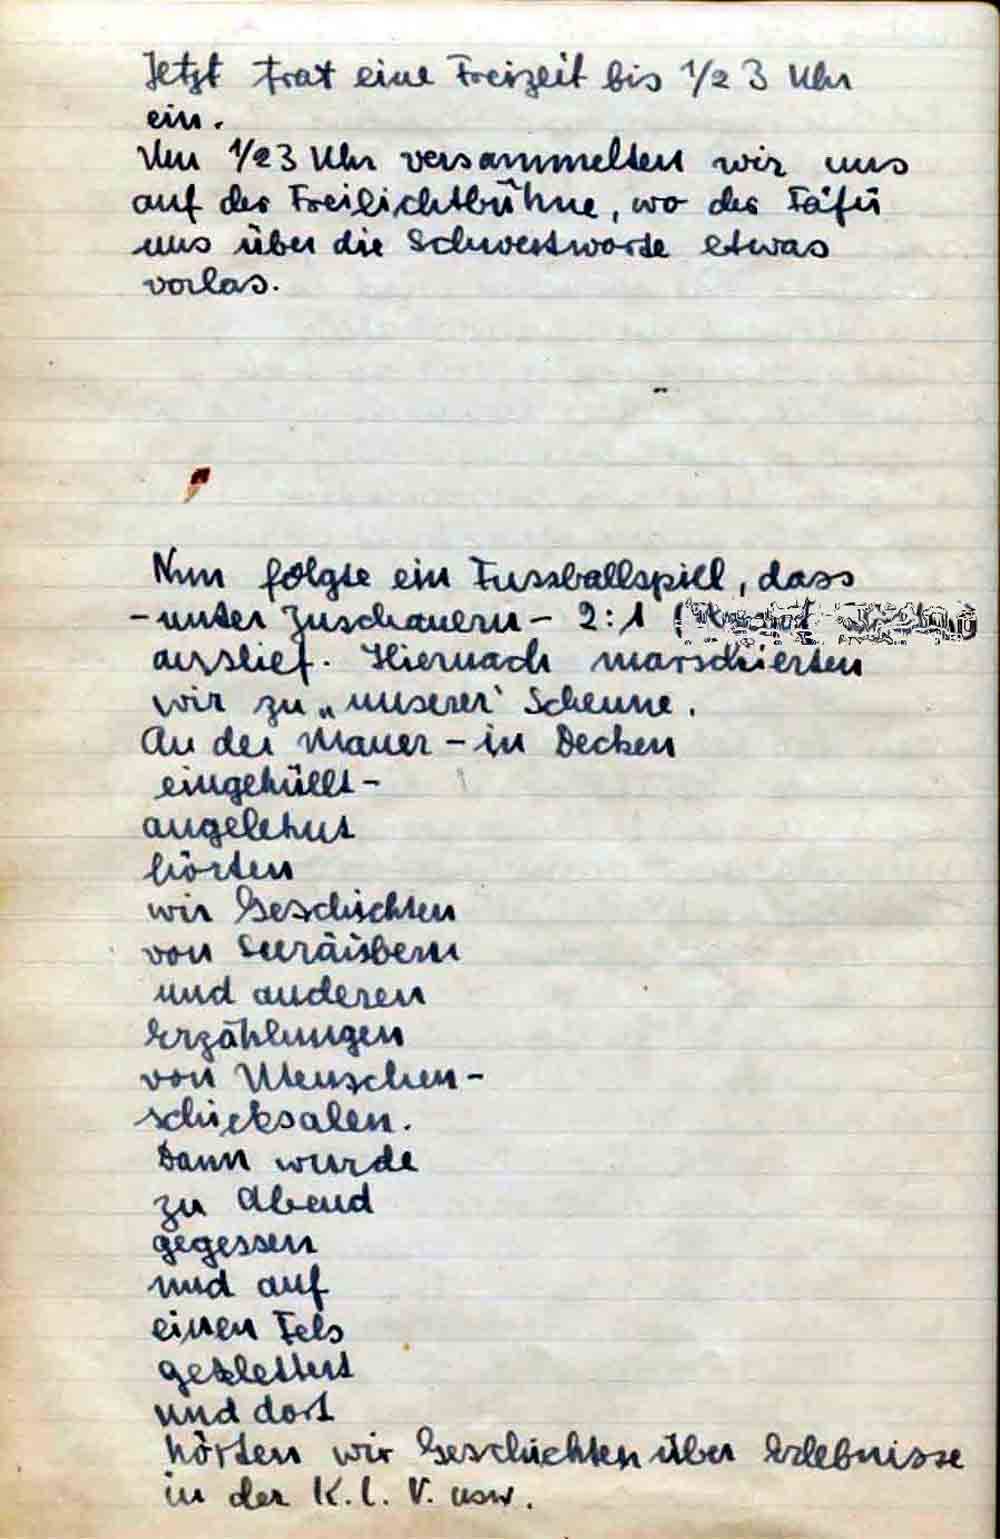 Jetzt trat eine Freizeit bis 1/2 3 Uhr
ein.
Um 1/2 3 Uhr versammelten wir uns
auf der Freilichtbühne, wo der Fäfü
uns über die Schwertworte etwas
vorlas.
Nun folgte ein Fussballspiel, dass
- unter Zuschauern - 2:1 (
auslief. Hiernach marschierten
wir zu „unserer" Scheune.
An der Mauer - in Decken
eingehüllt -
angelehnt
hörten
wir Geschichten
von Seeräubern
und anderen
Erzählungen
von Menschen-
schicksalen.
Dann wurde
zu Abend
gegessen
und auf
einen Fels
geklettert
und dort
hörten wir Geschichten über Erlebnisse
in der K.L.V. usw.